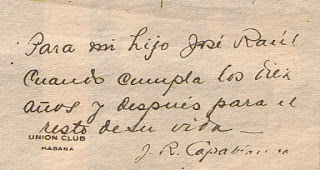 Para mi hijo José Raúl
Cuando cumpla los diez
años y después para el
resto de su vida —
UNION CLUB
HABANA
J. R. Capablanca